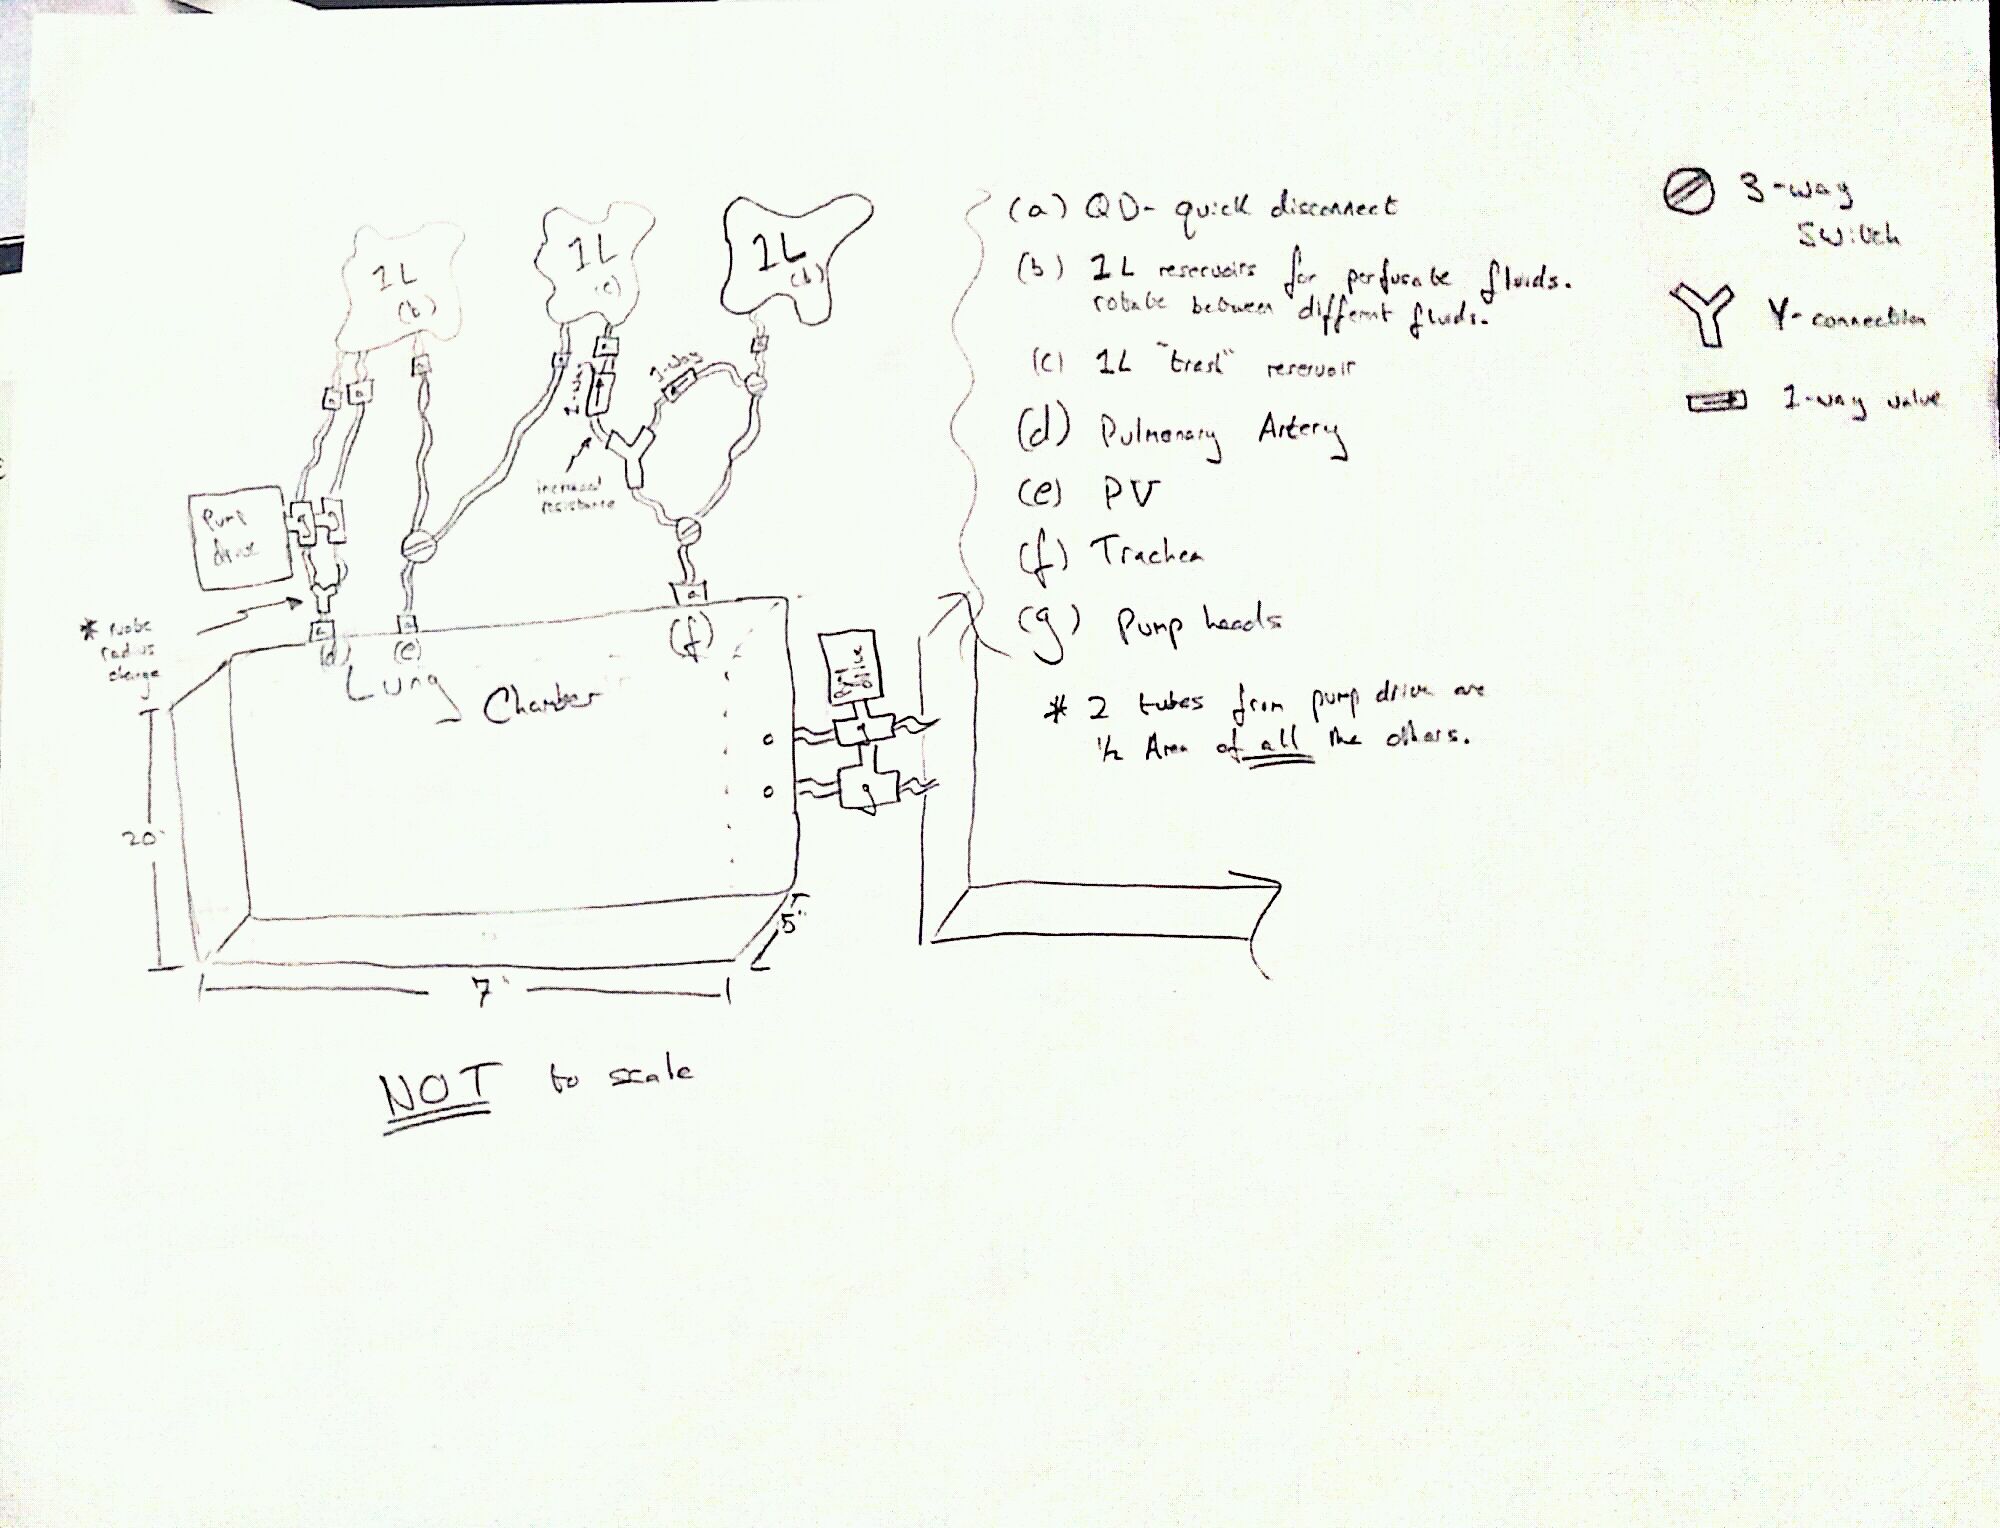 1L
(b)
1L
(c)
1L
(b)
a
a
a
a
a
a
1-way
1-way
increased
resistance
Pump
drive
g
g
* note
radius
change
a
a
a
(d)
(e)
(f)
Lung Chamber
Pump
drive
g
g
20"
7"
5"
NOT to scale
(a) QD- quick disconnect
(b) 1L reservoirs for perfusate fluids.
rotate between different fluids.
(c) 1L "trash" reservoir
(d) Pulmonary Artery
(e) PV
(f) Trachea
(g) Pump heads
* 2 tubes from pump drive are
1/2 Area of all the others.
3-way
Switch
Y-connection
1-way valve